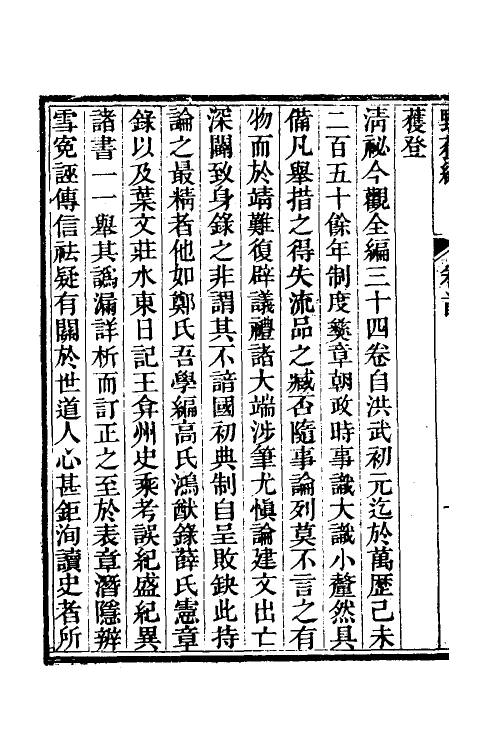 獲登
淸祕今觀全編三十四卷自洪武初元迄於萬歷己未
二百五十餘年制度彝章朝政時事識大識小釐然具
備凡舉措之得失流品之臧否隨事論列莫不言之有
物而於靖難復辟議禮諸大端涉筆尤愼論建文出亡
深闢致身錄之非謂其不諳國初典制自呈敗缺此持
論之最精者他如鄭氏吾學編高氏鴻猷錄薛氏憲章
錄以及葉文莊水東日記王弇州史乘考誤紀盛紀異
諸書一一舉其譌漏詳析而訂正之至於表章潛隱辨
雪寃誣傳信袪疑有關於世道人心甚鉅洵讀史者所